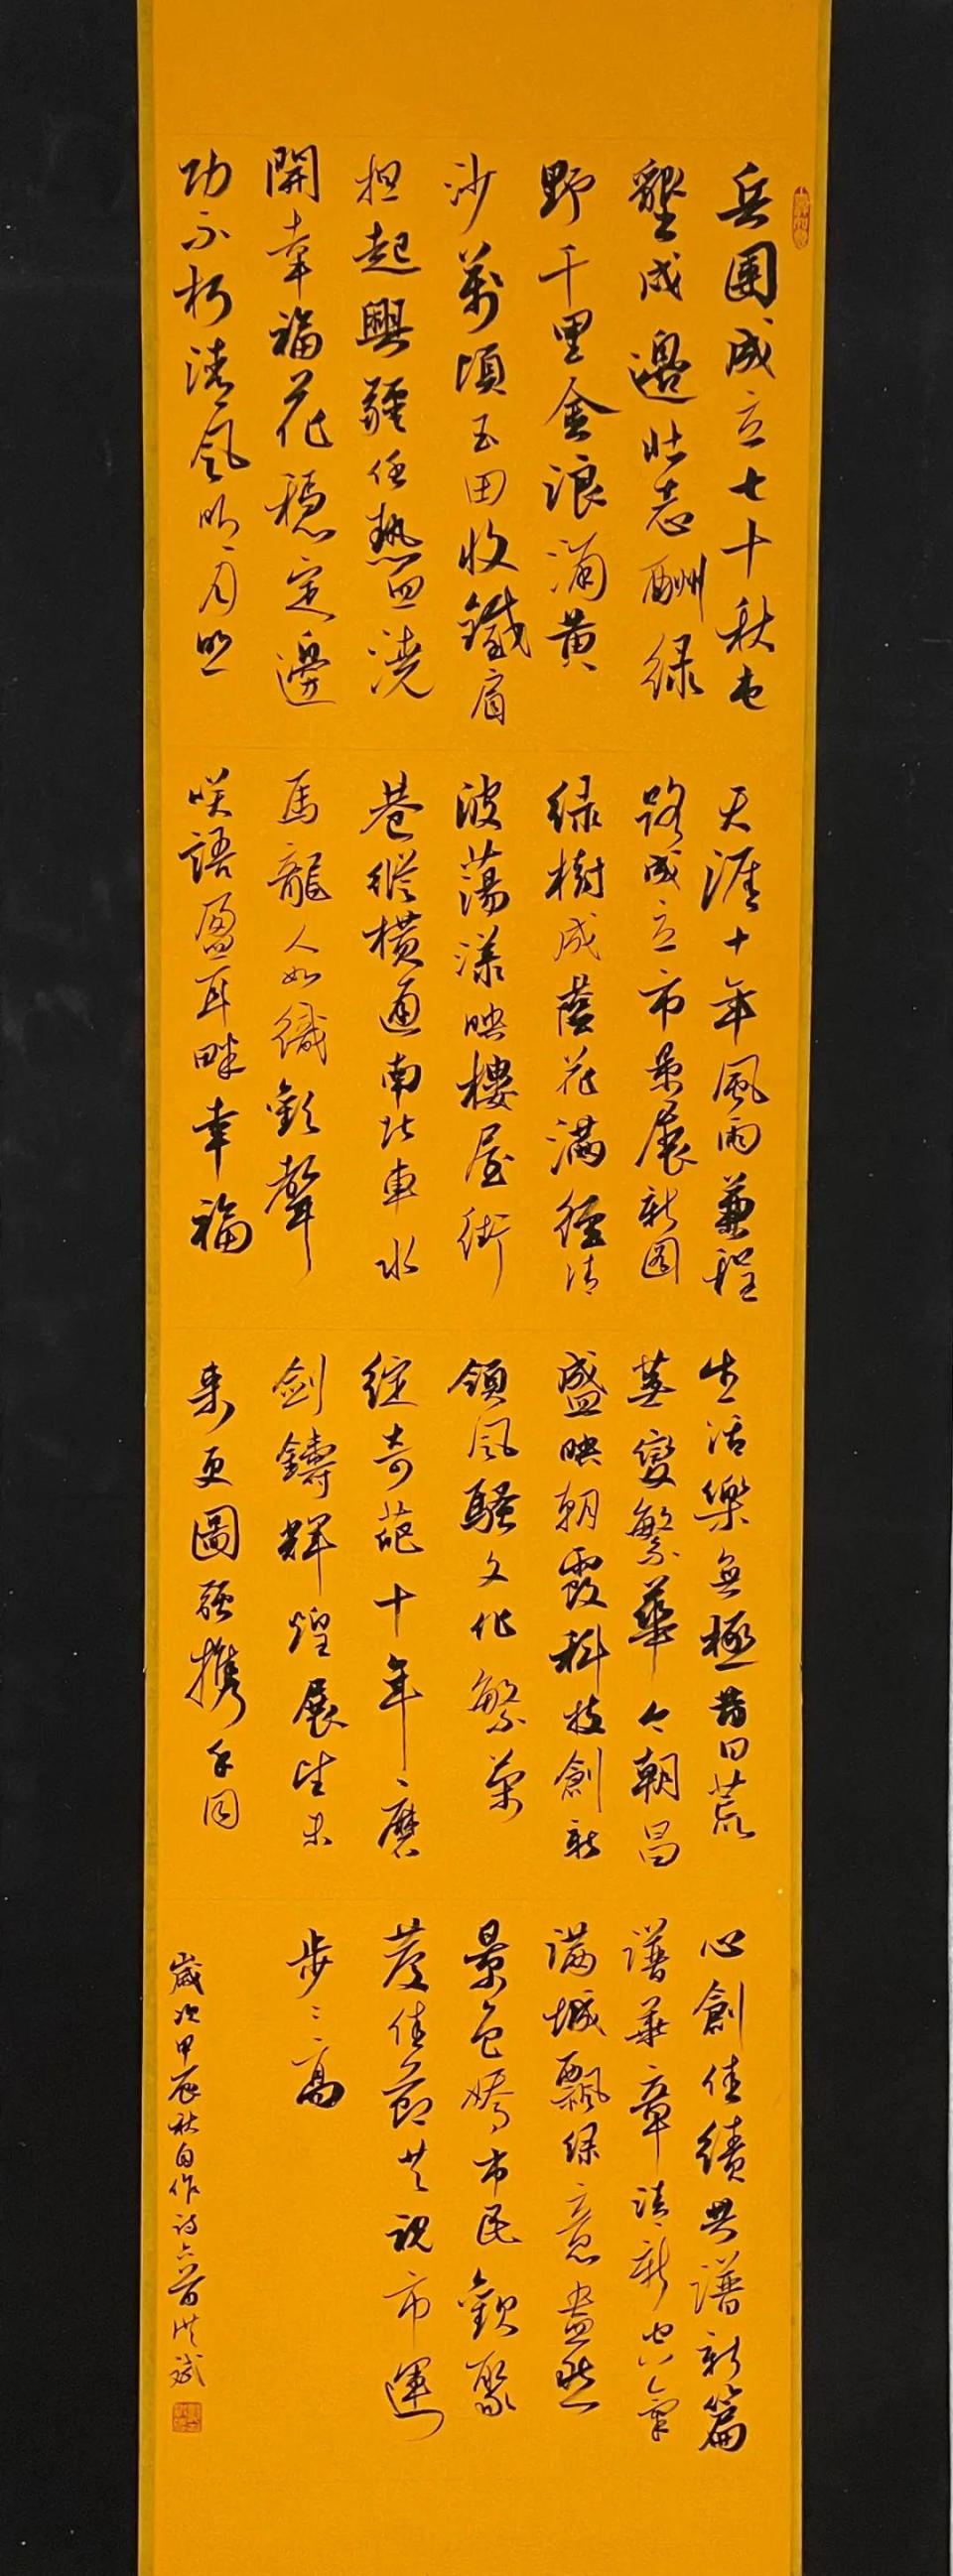 兵團成立七十秋屯
墾戍邊壯志酬绿
野千里金浪涌黄
沙萬頃玉田收鐵肩
担起興疆任熱血澆
開幸福花穩定邊
功不朽清風明月照
天涯十年風雨兼程
路成立市果展新图
绿樹成蔭花满徑清
波蕩漾映樓屋街
巷縱橫通南北車水
馬龍人如織歡聲
咲語盈耳畔幸福
生活樂無極昔日荒
蕪變繁華今朝昌
盛映朝霞科技創新
領風騷文化繁荣
綻奇葩十年磨
剑鑄輝煌展望未
来更圖强携手同
心創佳績共譜新篇
譜華章清新空氣
满城飄绿意盎然
景色嬌市民歡聚
度佳節共祝市運
步々高
歲次甲辰秋自作诗六首洪斌